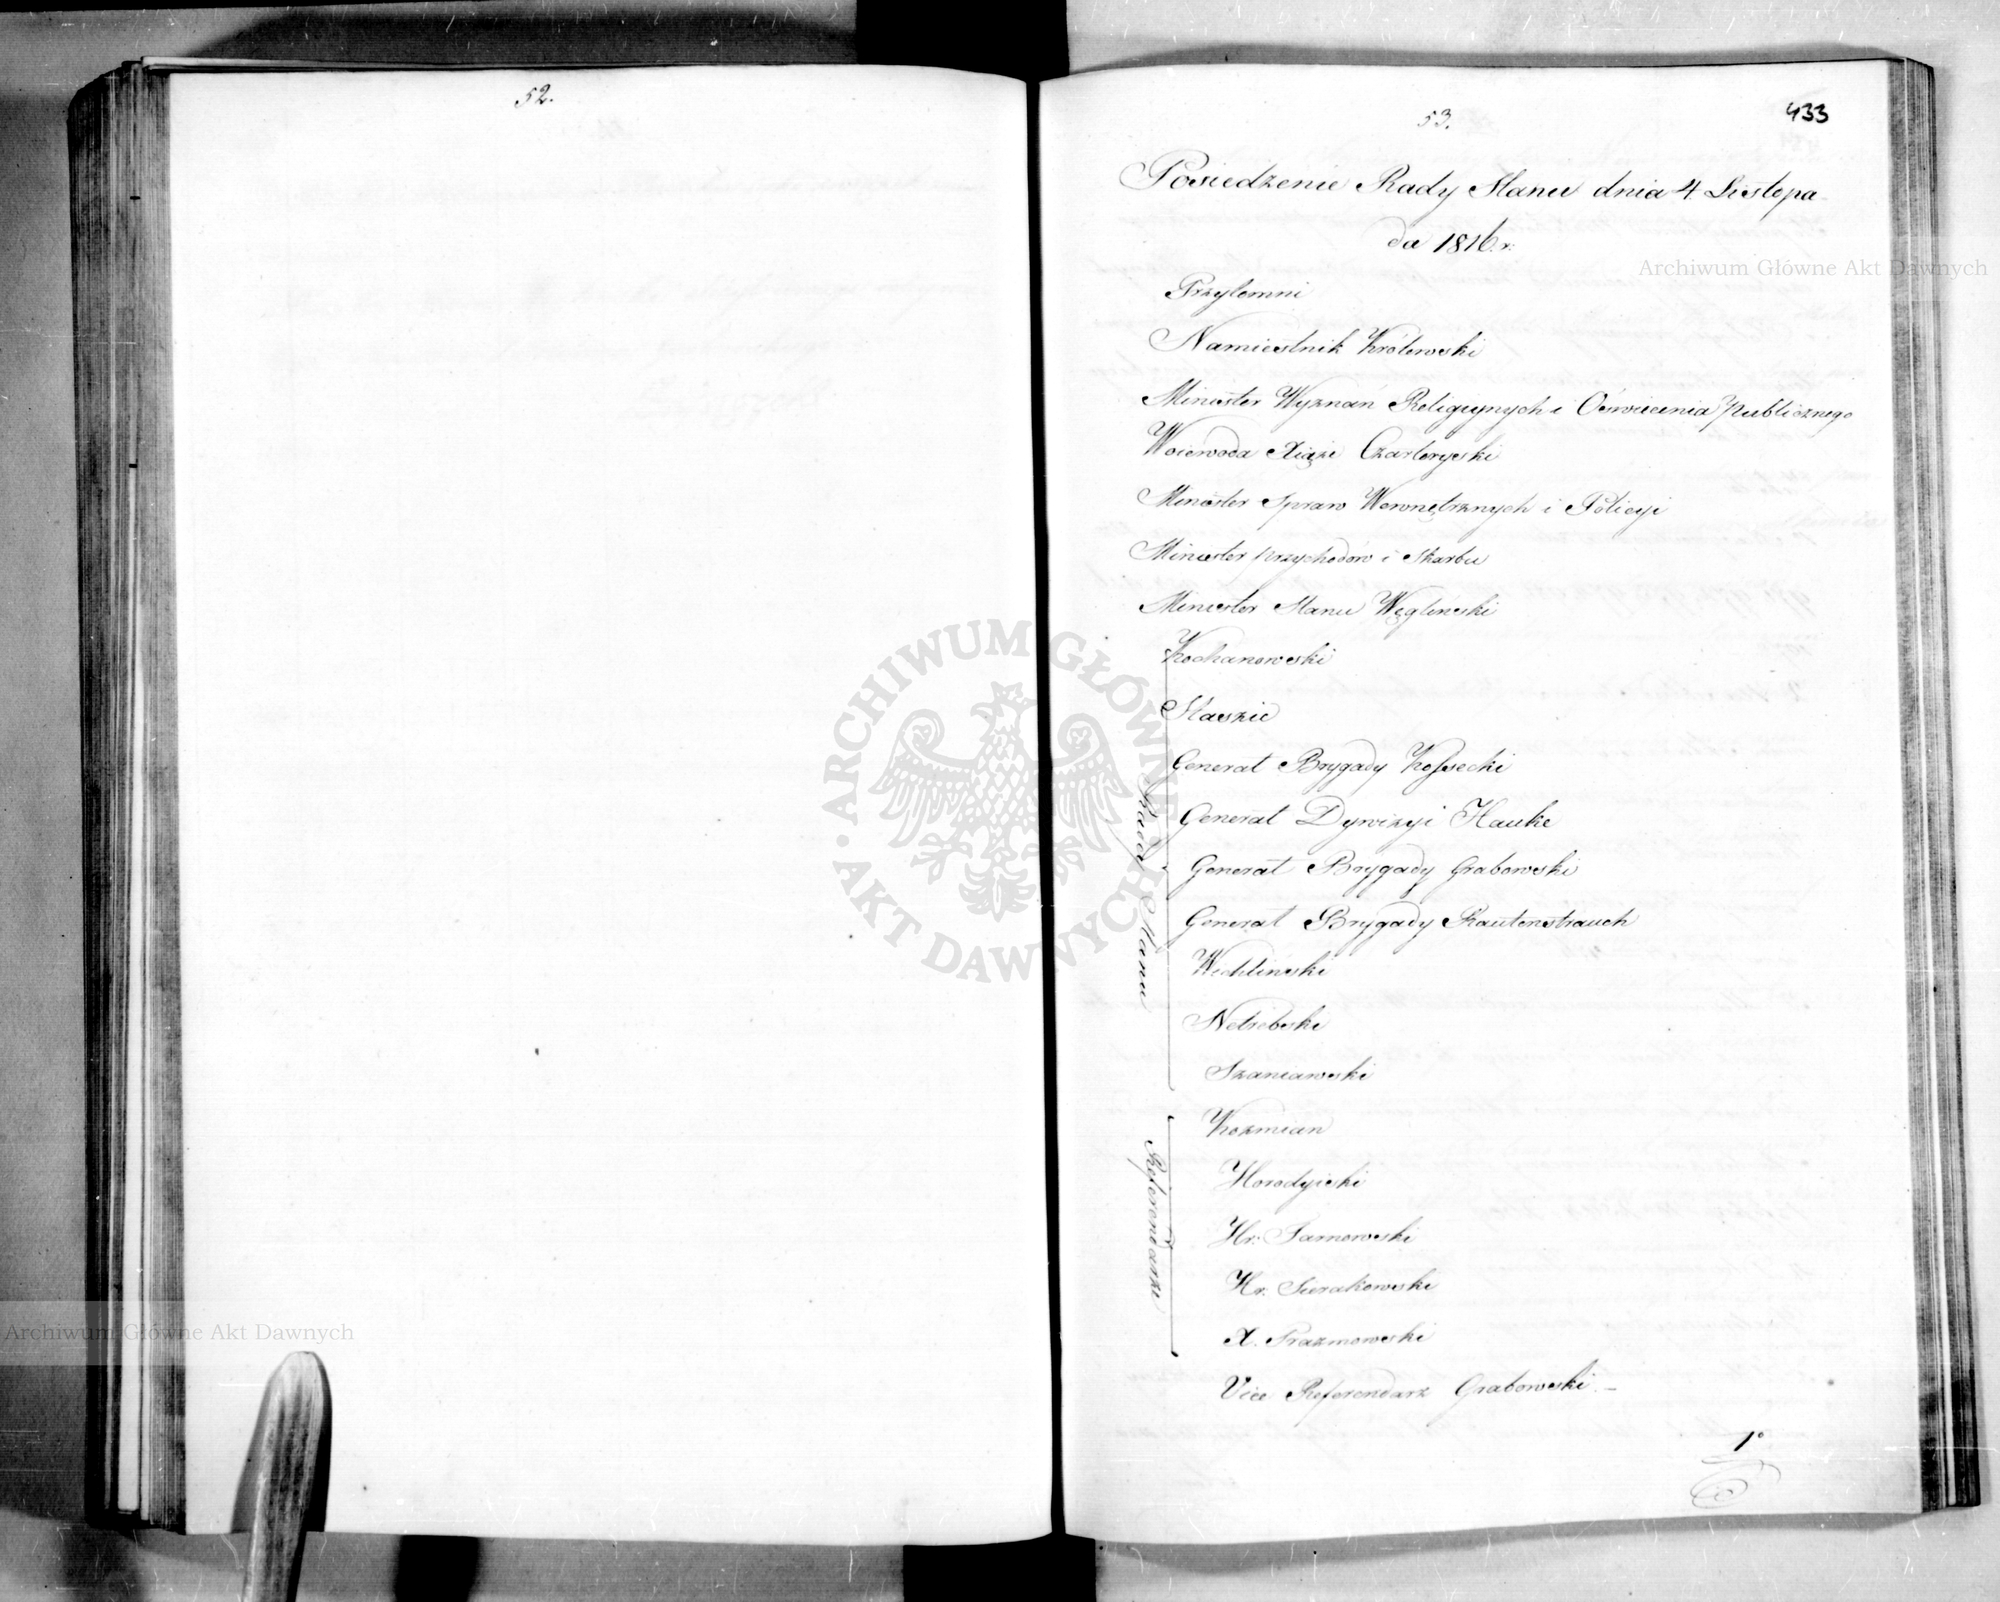 52.
53.
433
Posiedzenie Rady Stanu dnia 4 Listopa-
da 1816.r.
Przytomni
Namiestnik Królewski
Minister Wyznań Religiynych i Oświecenia Publicznego
Woiewoda Xiąże Czartoryski
Minister Spraw Wewnętrznych i Policyi
Minister Przychodów i Skarbu
Minister Stanu Węgleński
Kochanowski
Staszic
Generał Brygady Kossecki
Generał Dywizyi Hauke
Generał Brygady Grabowski
Generał Brygady Rautenstrauch
Wichliński
Netrebski
Szaniawski
Rada Stanu
Kozmian
Horodyiski
Hr: Tarnowski
Hr. Sierakowski
X. Prazmowski
Referendarze
Vice Referendarz Grabowski. –
1°
Archiwum Główne Akt Dawnych
Archiwum Główne Akt Dawnych
ARCHIWUM GŁÓWNE AKT DAWNYCH